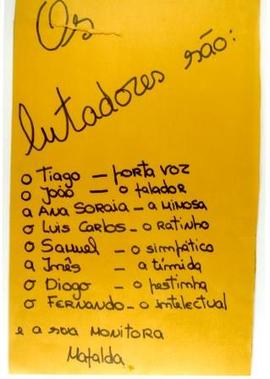 Os
lutadores são:
o Tiago — porta voz
o João — o falador
a Ana Soraia — a mimosa
o Luis Carlos — o Ratinho
o Samuel — o simpático
a Inês — a tímida
o Diogo — o pestinha
o Fernando — o intelectual
e a sua Monitora
Mafalda